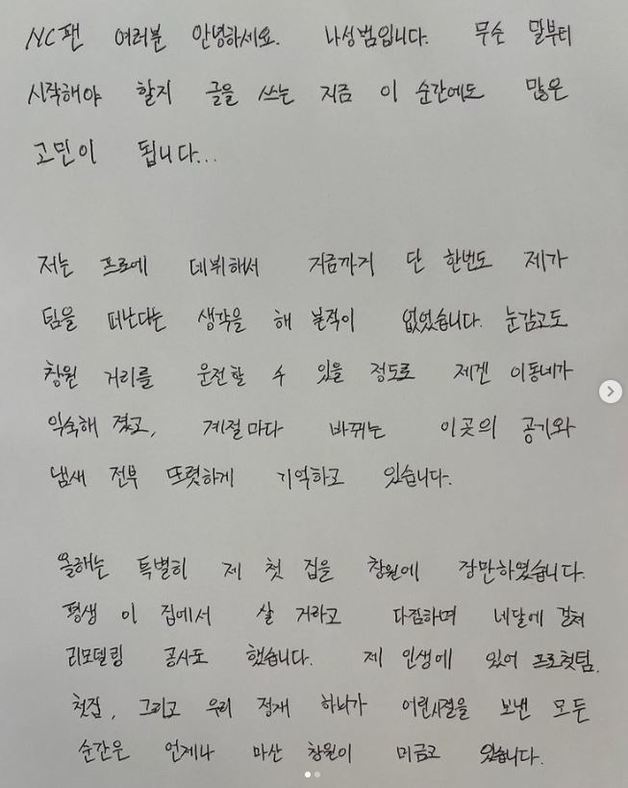 NC팬 여러분 안녕하세요. 나성범입니다. 무슨 말부터
시작해야 할지 글을 쓰는 지금 이 순간에도 많은
고민이 됩니다...
저는 프로에 데뷔해서 지금까지 단 한번도 제가
팀을 떠난다는 생각을 해 본적이 없었습니다. 눈감고도
창원 거리를 운전할 수 있을 정도로 제겐 이동네가
익숙해 졌고, 계절마다 바뀌는 이곳의 공기와
냄새 전부 또렷하게 기억하고 있습니다.
올해는 특별히 제 첫 집을 창원에 장만하였습니다.
평생 이 집에서 살 거라고 다짐하며 네달에 걸쳐
리모델링 공사도 했습니다. 제 인생에 있어 프로첫팀,
첫집, 그리고 우리 정재 하나가 어린시절을 보낸 모든
순간은 언제나 마산 창원이 머금고 있습니다.